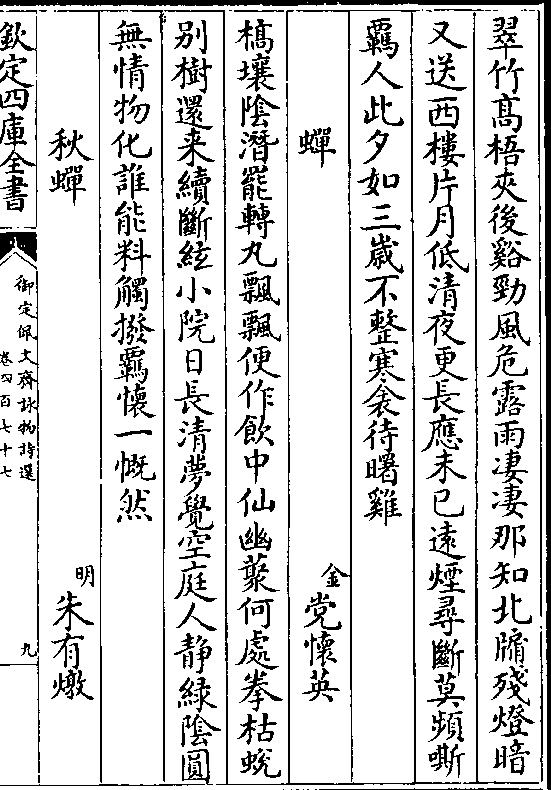 翠竹高梧夾後谿勁風危露雨凄凄那知北牖殘燈暗
又送西樓片月低清夜更長應未已遠煙尋斷莫頻嘶
羇人此夕如三歲不整寒衾待曙雞
蟬 金 党懷英
槁壤陰潛罷轉丸飄飄便作飲中仙幽藂何處拳枯蛻
别樹還来續斷絃小院日長清夢覺空庭人静緑陰圓
無情物化誰能料觸撥羇懷一慨然
秋蟬 明 朱有燉
欽定四庫全書
御定佩文齋詠物詩選
卷四百七十七
九